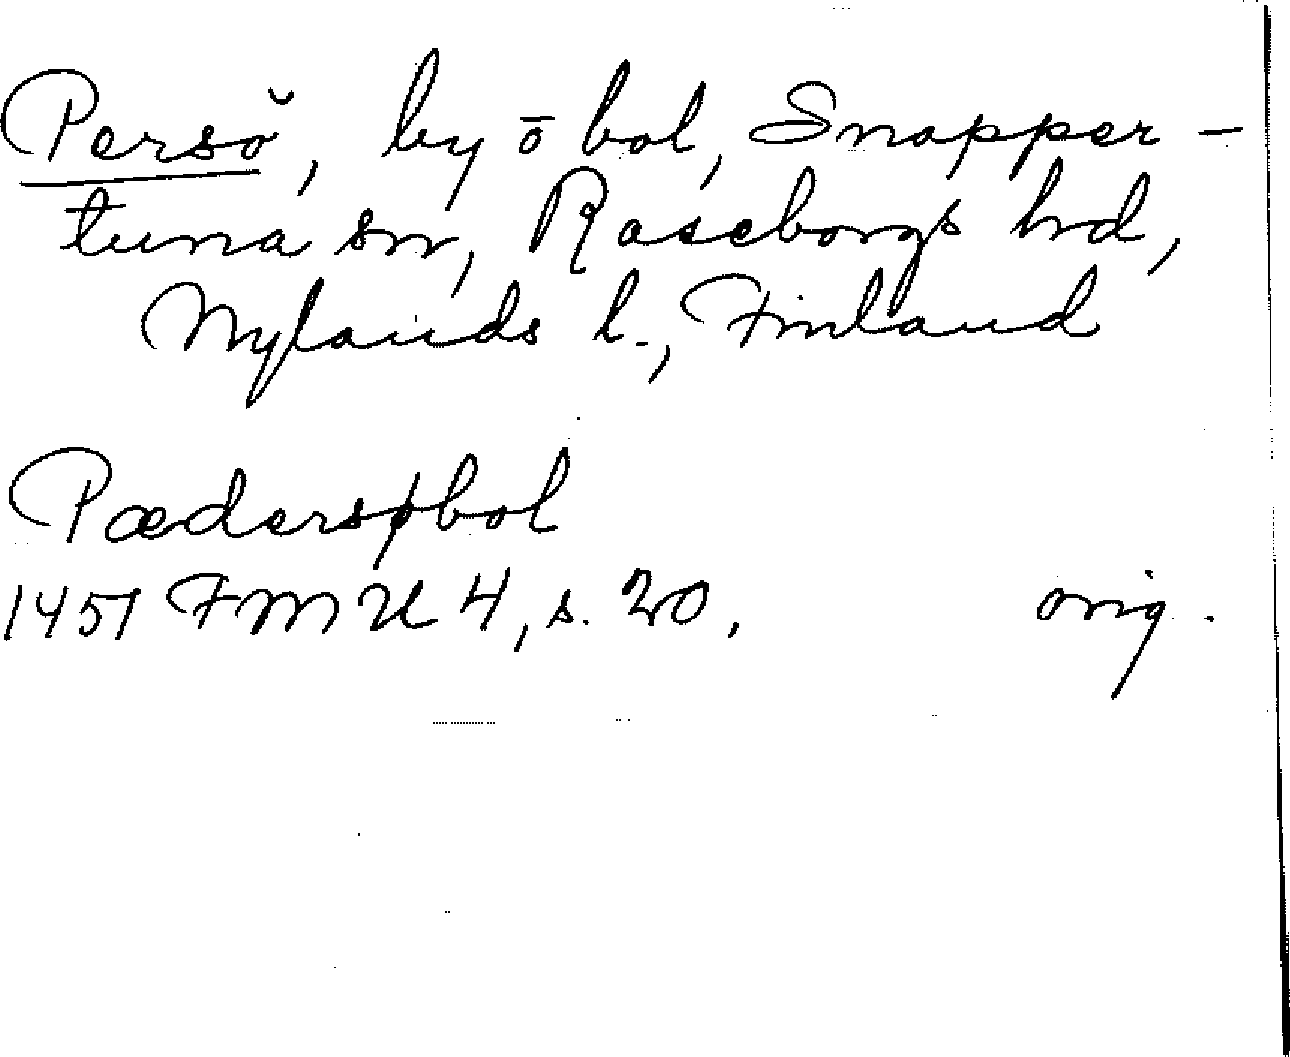 Persö, by ō bol, Snapper-
tuna sn, Raseborgs hd,
Nylands l., Finland
Pædersøbol
1451 FMU 4, s. 20, orig.